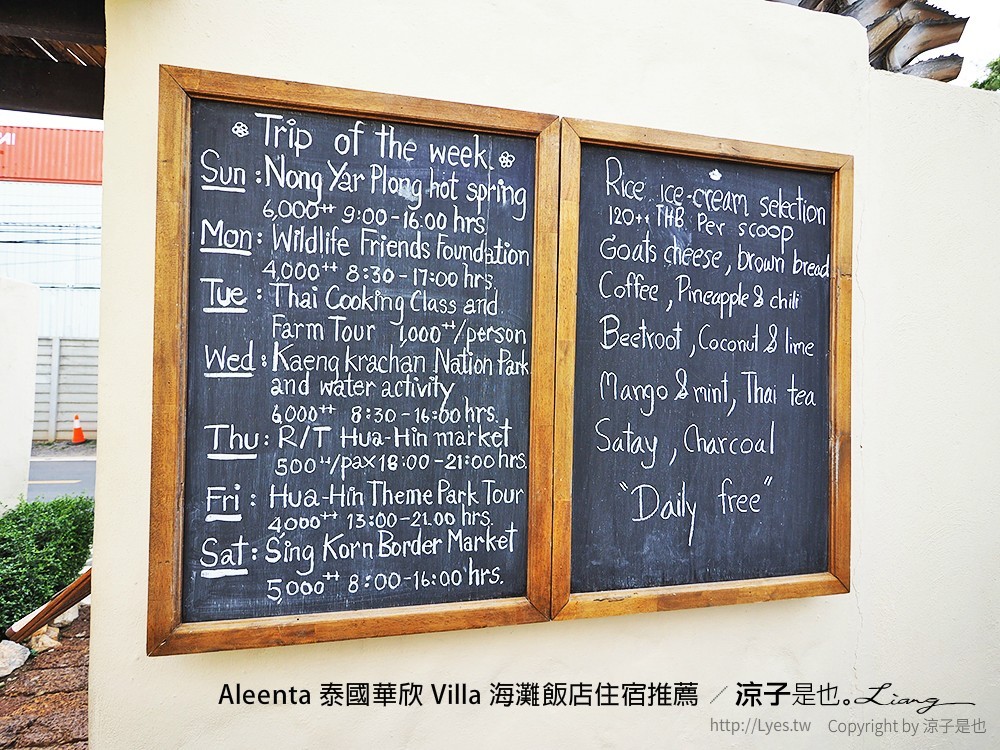 Trip of the week
Sun : Nong Yar Plong hot spring
6,000++ 9:00-16:00 hrs.
Mon : Wildlife Friends Foundation
4,000++ 8:30-17:00 hrs.
Tue : Thai Cooking Class and
Farm Tour 1,000++/person
Wed : Kaeng krachan Nation Park
and water activity
6,000++ 8:30-16:00 hrs.
Thu : R/T Hua-Hin market
500++/pax 18:00-21:00 hrs.
Fri : Hua-Hin Theme Park Tour
4,000++ 13:00-21.00 hrs.
Sat : Sing Korn Border Market
5,000++ 8:00-16:00 hrs.
Rice ice-cream selection
120++ THB. Per scoop
Goats cheese, brown bread
Coffee, Pineapple & chili
Beetroot, Coconut & lime
Mango & mint, Thai tea
Satay, Charcoal
"Daily free"
Aleenta 泰國華欣 Villa 海灘飯店住宿推薦 / 涼子是也。Liang
http://Lyes.tw Copyright by 涼子是也